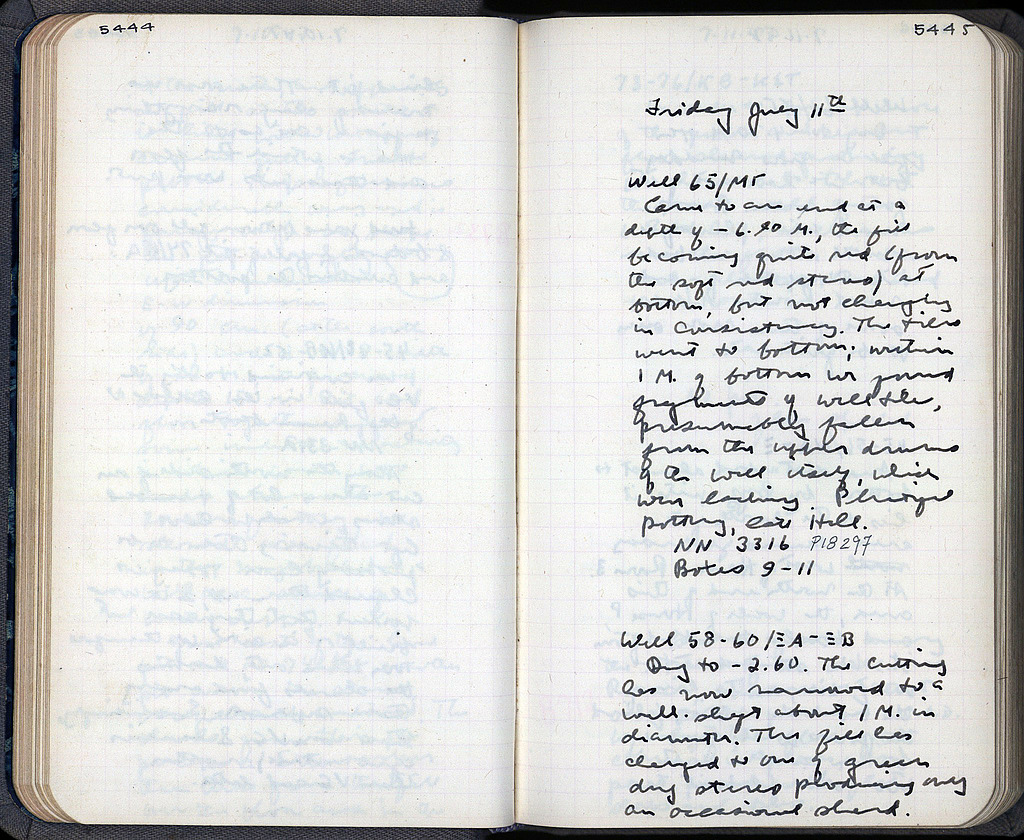 5444
5445
Friday July 11th
Well 65/ΜΓ
Came to an end at a
depth of -6.20 M., the fill
becoming quite red (from
the soft red stereo) at
bottom, but not changing
in consistency. The tiles
went to bottom; within
1 M. of bottom we found
fragments of well tile,
presumably fallen
from the upper drums
of the well itself, which
were lacking. Plentiful
pottery, late Hell.
NN 3316 P18297
Boxes 9-11
Well 58-60/ΞA-ΞB
Dug to -2.60. The cutting
has now narrowed to a
well-shaft about 1 M. in
diameter. The fill has
changed to one of green
dug stereo producing only
an occasional sherd.